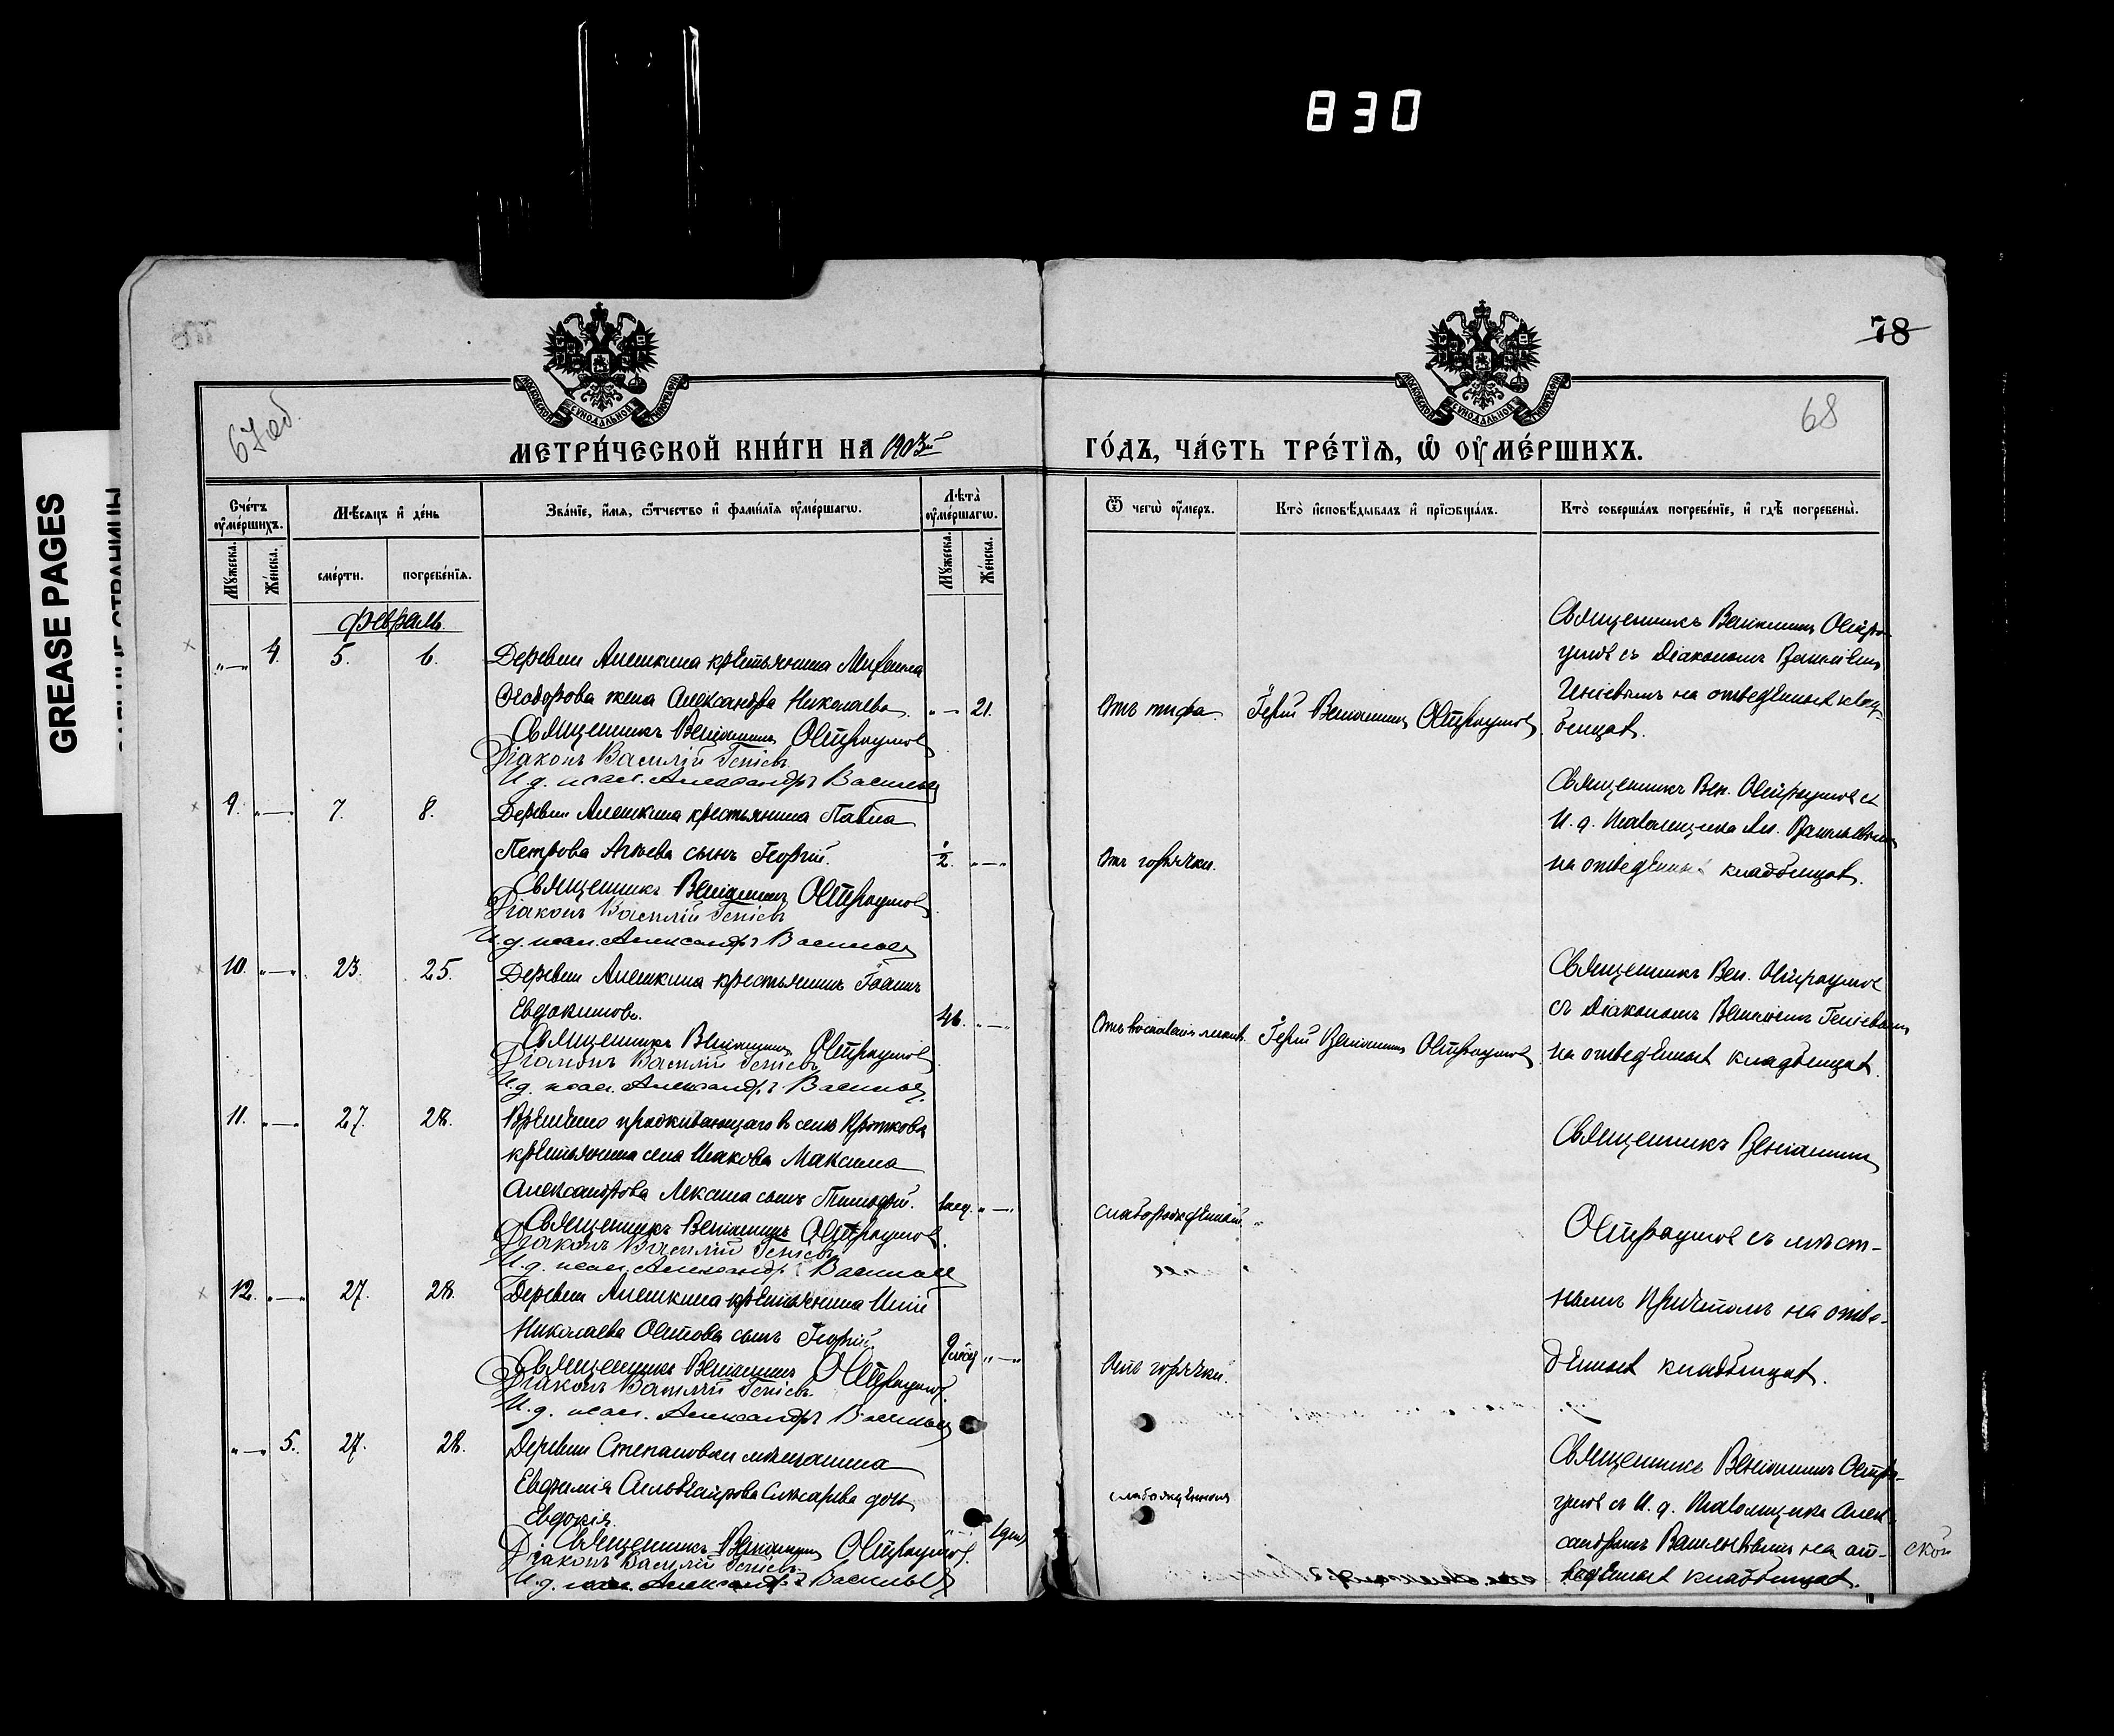 830
GREASE PAGES
78
67об.
68
МЕТРИ́ЧЕСКОЙ КНИ́ГИ НА 1903й
ГО́ДЪ, ЧА́СТЬ ТРЕ́ТІЯ, Ѡ ОУМЕ́РШИХЪ.
Сче́тъ оумершихъ.
Мѣсяцъ и день
Зва́нїе, имя, ѿчество и фамилїя оумершагѡ.
Лѣта оумершагѡ.
Ѿ чегѡ оумеръ.
Кто исповѣдывалъ и прїѡбщалъ.
Кто совершалъ погребенїе, и гдѣ погребены.
Мужеска.
Женска.
смерти.
погребенїя.
Мужеска.
Женска.
Февраль.
„—„ 4. 5. 6. Деревни Алешкина крестьянина Михаила
Ѳеодорова жена Александра Николаева. „—„ 21.
Священникъ Веніаминъ Остроумов
Діаконъ Василій Геніевъ
И. д. псал. Александръ Васильев
Отъ тифа. Іерей Веніаминъ Остроумов
Священникъ Веніаминъ Остро-
умов съ діакономъ Василіемъ
Геніевымъ на отведенномъ клад-
бищѣ.
9. „—„ 7. 8. Деревни Алешкина крестьянина Павла
Петрова сынъ Георгій. 1/2. „—„
Священникъ Веніаминъ Остроумов
Діаконъ Василій Геніевъ
И. д. псал. Александръ Васильев
Отъ горячки.
Священникъ Вен. Остроумов съ
И. д. Псаломщика Ал. Васильевымъ
на отведенномъ кладбищѣ.
10. „—„ 23. 25. Деревни Алешкина крестьянинъ Іоаннъ
Евдокимовъ. 46. „—„
Священникъ Веніаминъ Остроумов
Діаконъ Василій Геніевъ
И. д. псал. Александръ Васильев
Отъ воспаленія легкихъ. Іерей Веніаминъ Остроумов
Священникъ Вен. Остроумов
съ діакономъ Василіемъ Геніевымъ
на отведенномъ кладбищѣ.
11. „—„ 27. 28. Временно проживающаго въ селѣ Кроткова
крестьянина села Максима
Александрова сынъ Тимофей. „—„
Священникъ Веніаминъ Остроумов
Діаконъ Василій Геніевъ
И. д. псал. Александръ Васильев
слаборожденный
Священникъ Веніаминъ
Остроумов съ мѣст-
нымъ причтомъ на отве-
денномъ кладбищѣ.
12. „—„ 27. 28. Деревни Алешкина крестьянина Иліи
Николаева сынъ Георгій. „—„
Священникъ Веніаминъ Остроумов
Діаконъ Василій Геніевъ
И. д. псал. Александръ Васильев
Отъ горячки.
„—„ 5. 27. 28. Деревни Степановки мѣщанина
Сильвестрова Слюсарева дочь
Евдокія. „—„ 1 день
Священникъ Веніаминъ Остроумов
Діаконъ Василій Геніевъ
И. д. псал. Александръ Васильев
слаборожденная
Священникъ Веніаминъ Остро-
умов съ И. д. Псаломщика Алек-
сандромъ Васильевымъ на от-
веденномъ кладбищѣ.